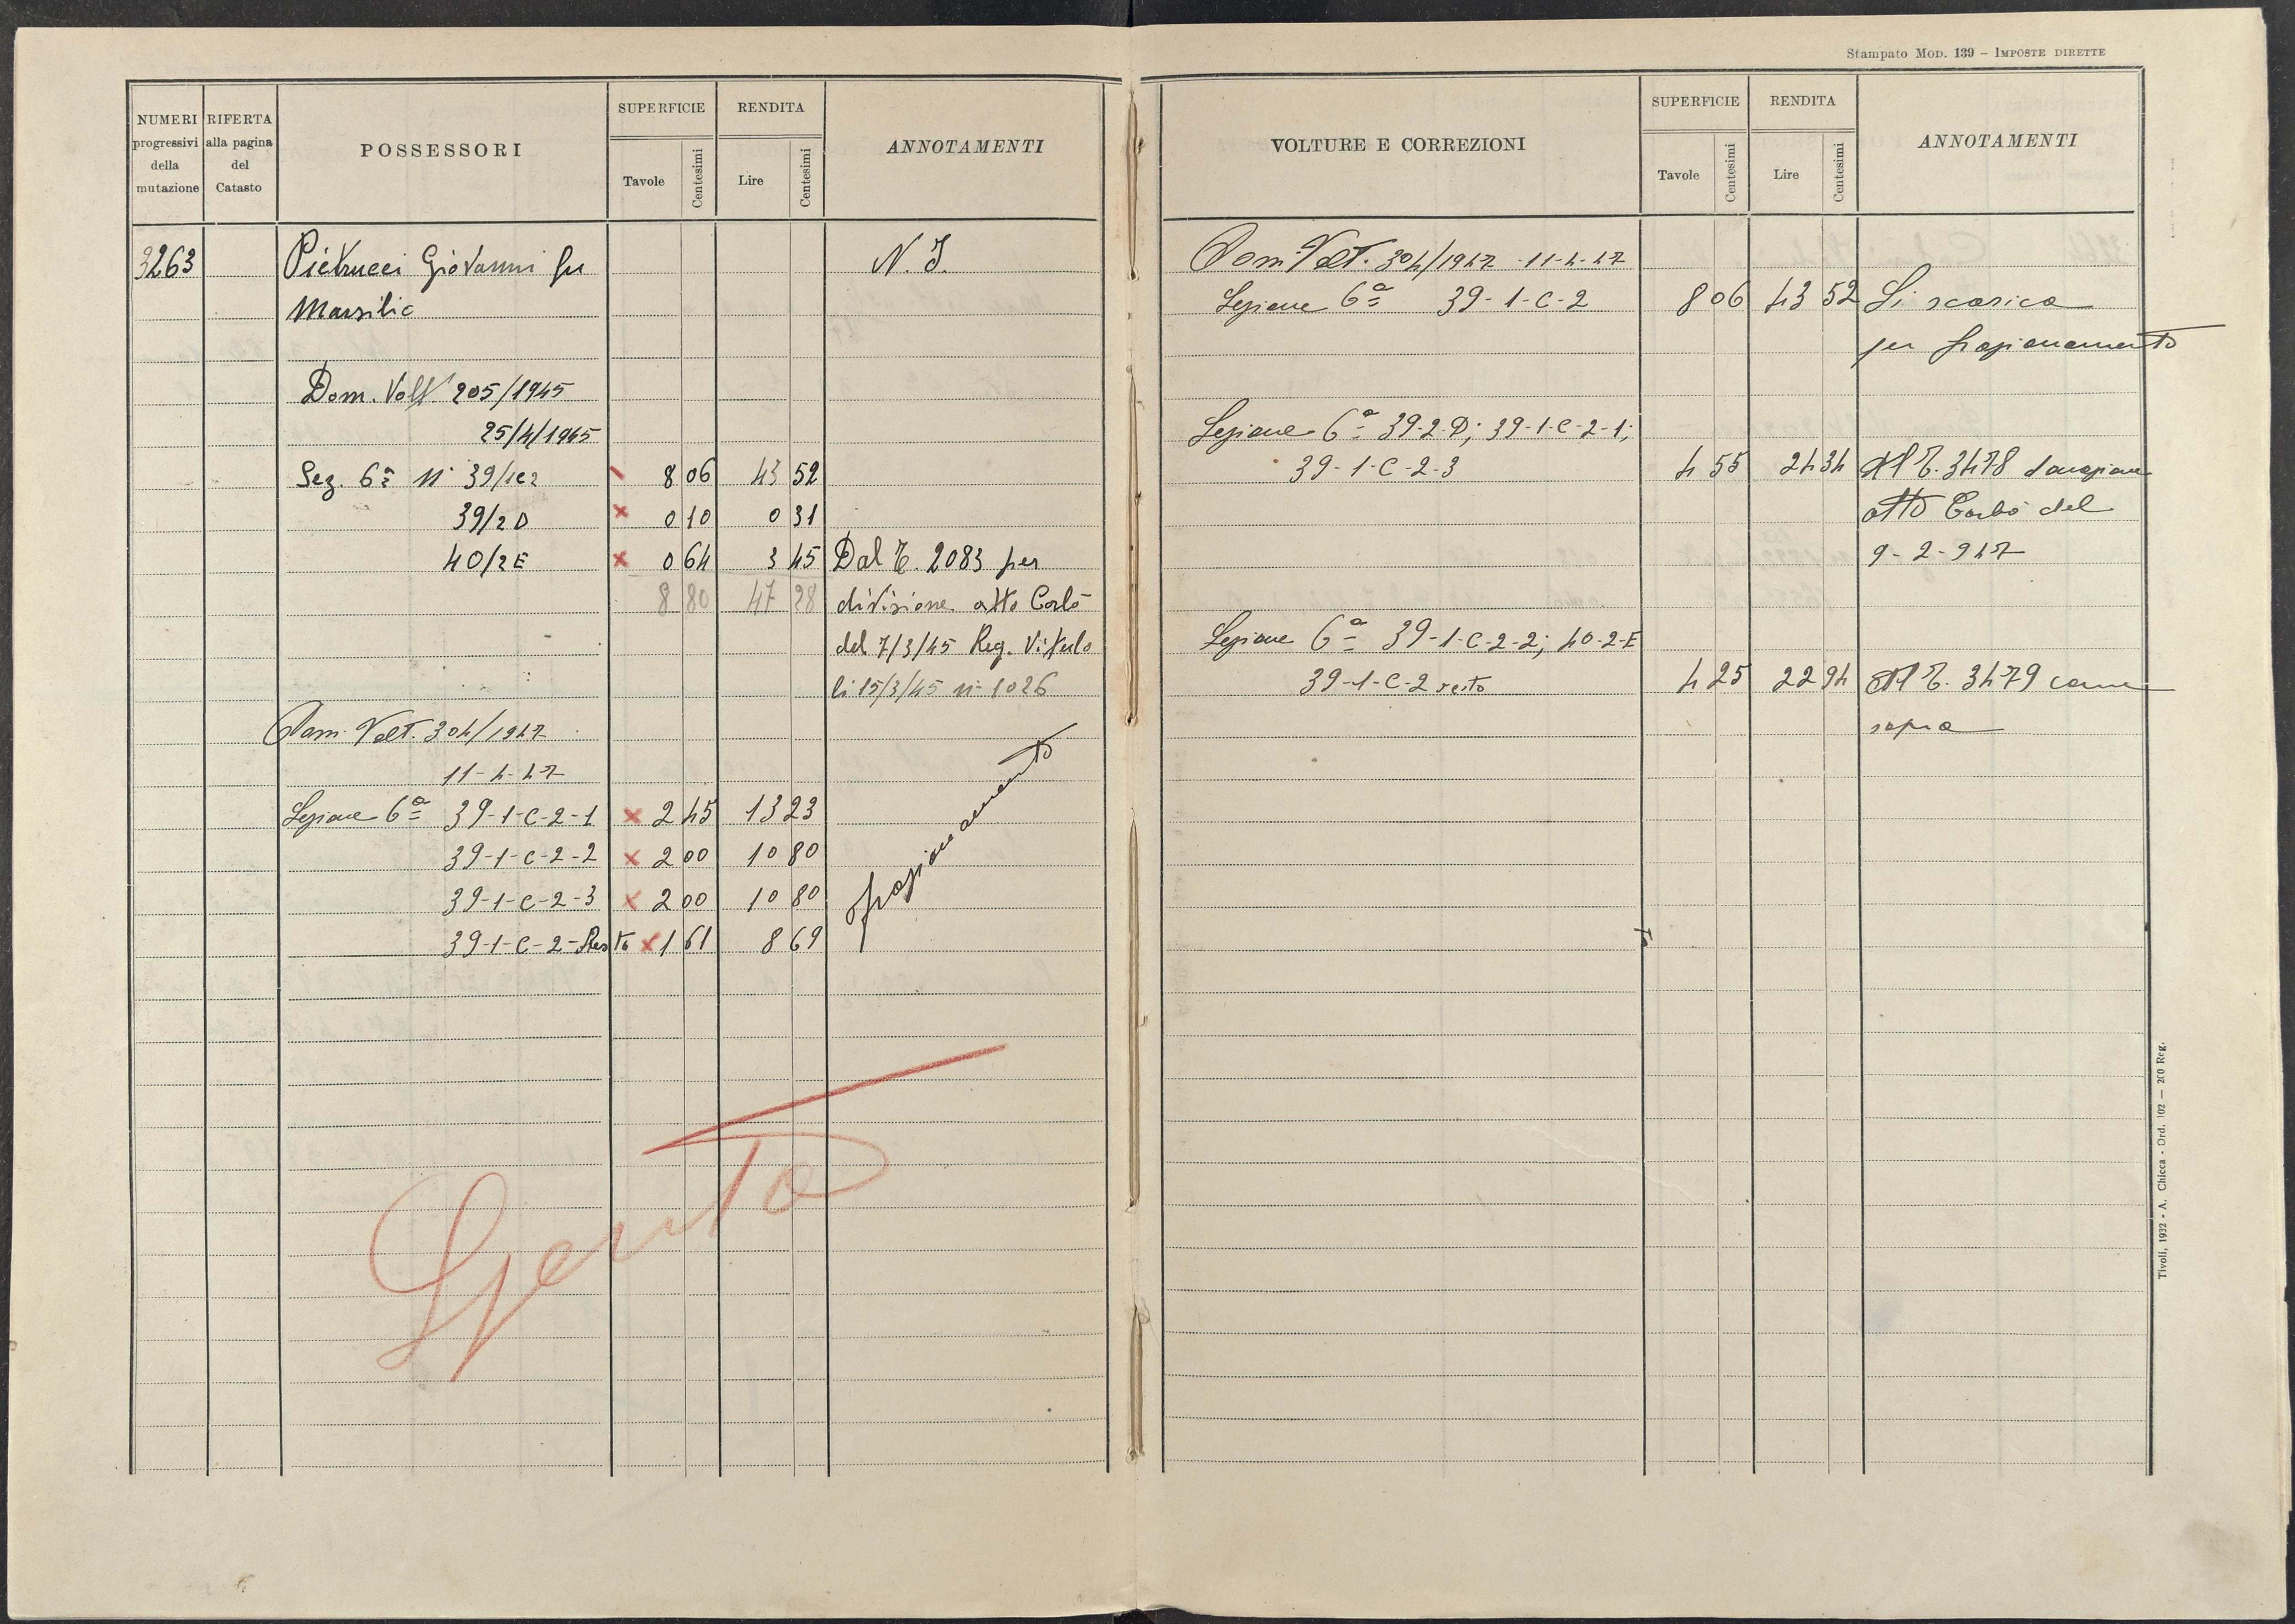 Stampato Mod. 139 – Imposte dirette
NUMERI progressivi della mutazione
RIFERTA alla pagina del Catasto
POSSESSORI
SUPERFICIE
Tavole
Centesimi
RENDITA
Lire
Centesimi
ANNOTAMENTI
3263 Pietrucci Giovanni fu N. I.
Marsilio
Dom. Volt 205/1945
25/4/1945
Sez. 6ª N° 39/1c2 8 06 43 52
39/2D 0 10 0 31
40/2E 0 64 3 45 Dal T. 2083 per
8 80 47 28 divisione atto Carlo
del 7/3/45 Reg. Viterbo
li 15/3/45 n° 1026
Dom. Volt. 304/1947
11-4-47
Sezione 6ª 39-1-C-2-1 2 45 13 23
39-1-C-2-2 2 00 10 80
39-1-C-2-3 2 00 10 80
39-1-C-2-Resto 1 61 8 69
frazionamento
Spento
VOLTURE E CORREZIONI
SUPERFICIE
Tavole
Centesimi
RENDITA
Lire
Centesimi
ANNOTAMENTI
Dom. Volt. 304/1947 - 11-4-47
Sezione 6ª 39-1-C-2 8 06 43 52 Si scarica
per frazionamento
Sezione 6ª 39-2-D; 39-1-C-2-1;
39-1-C-2-3 4 55 24 34 Al T. 3478 donazione
atto Carbò del
9-2-947
Sezione 6ª 39-1-C-2-2; 40-2-E
39-1-C-2 resto 4 25 22 94 Al T. 3479 come
sopra
Tivoli, 1932 - A. Chicca - Ord. 102 — 200 Reg.